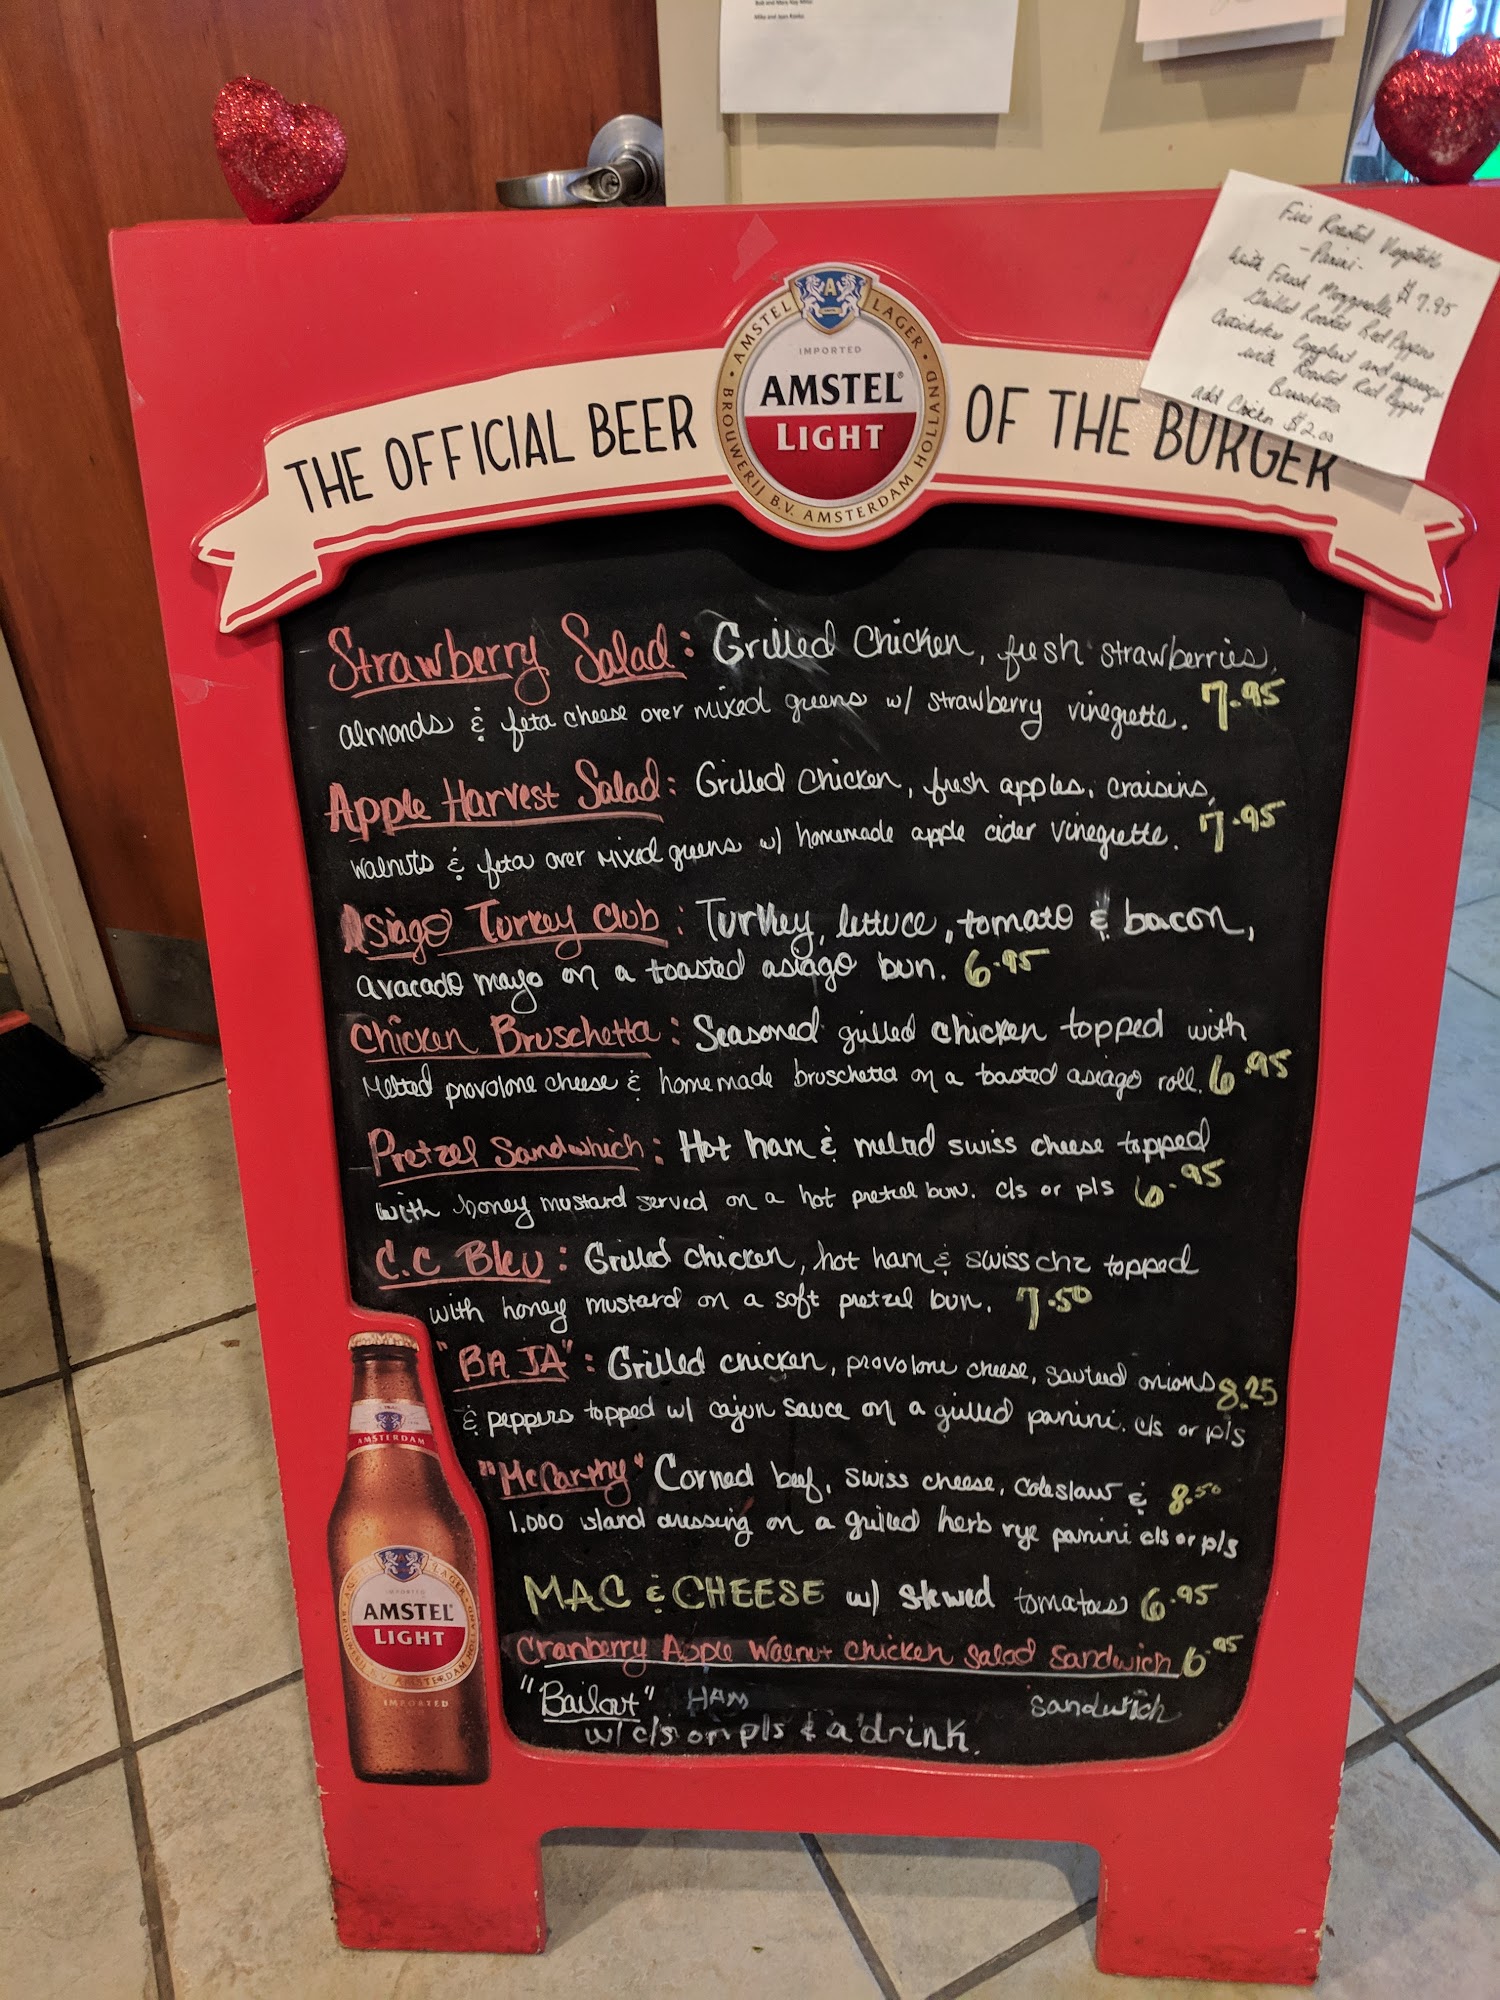 Bob and Mary Kay
Mike and Jean
Fire Roasted Vegetable
-Panini-
with Fresh Mozzarella $7.95
Grilled Roasted Red Peppers
Artichokes Eggplant and asparagus
with Roasted Red Pepper
Bruschetta
add Chicken $2.00
AMSTEL LAGER
BROUWERIJ B.V. AMSTERDAM HOLLAND
IMPORTED
THE OFFICIAL BEER AMSTEL® LIGHT OF THE BURGER
Strawberry Salad: Grilled Chicken, fresh strawberries,
almonds & feta cheese over mixed greens w/ strawberry vinegrette. 7.95
Apple Harvest Salad: Grilled Chicken, fresh apples, craisins,
walnuts & feta over mixed greens w/ homemade apple cider vinegrette. 7.95
Asiago Turkey Club: Turkey, lettuce, tomato & bacon,
avacado mayo on a toasted asiago bun. 6.95
Chicken Bruschetta: Seasoned grilled chicken topped with
Melted provolone cheese & homemade bruschetta on a toasted asiago roll. 6.95
Pretzel Sandwhich: Hot ham & melted swiss cheese topped
with honey mustard served on a hot pretzel bun. c/s or p/s 6.95
C.C Bleu: Grilled chicken, hot ham & swiss chz topped
with honey mustard on a soft pretzel bun. 7.50
"BAJA": Grilled chicken, provolone cheese, sauteed onions 8.25
& peppers topped w/ cajun sauce on a grilled panini. c/s or p/s
"McCarthy" Corned beef, swiss cheese, coleslaw & 8.50
1,000 island dressing on a grilled herb rye panini c/s or p/s
MAC & CHEESE w/ stewed tomatoes 6.95
Cranberry Apple Walnut chicken salad Sandwich 6.95
"Bailout" HAM sandwich
w/ c/s or p/s & a drink.
AMSTERDAM
AMSTEL LAGER
IMPORTED
AMSTEL®
LIGHT
IMPORTED